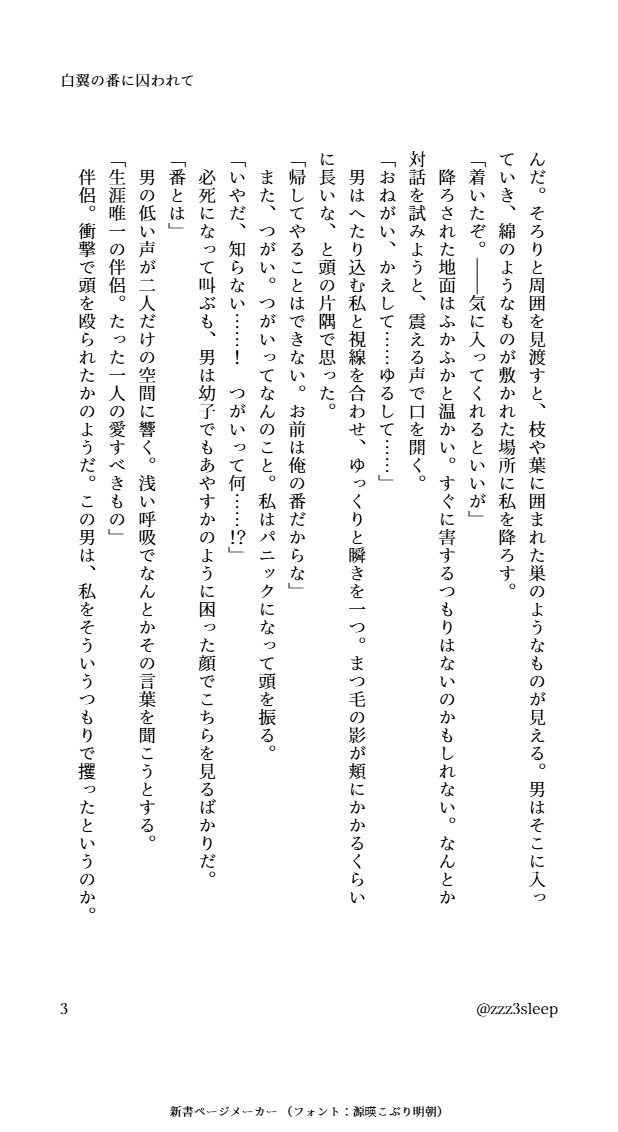 白翼の番に囚われて
んだ。そろりと周囲を見渡すと、枝や葉に囲まれた巣のようなものが見える。男はそこに入っ
ていき、綿のようなものが敷かれた場所に私を降ろす。
「着いたぞ。――気に入ってくれるといいが」
降ろされた地面はふかふかと温かい。すぐに害するつもりはないのかもしれない。なんとか
対話を試みようと、震える声で口を開く。
「おねがい、かえして……ゆるして……」
男はへたり込む私と視線を合わせ、ゆっくりと瞬きを一つ。まつ毛の影が頬にかかるくらい
に長いな、と頭の片隅で思った。
「帰してやることはできない。お前は俺の番だからな」
また、つがい。つがいってなんのこと。私はパニックになって頭を振る。
「いやだ、知らない……！　つがいって何……!?」
必死になって叫ぶも、男は幼子でもあやすかのように困った顔でこちらを見るばかりだ。
「番とは」
男の低い声が二人だけの空間に響く。浅い呼吸でなんとかその言葉を聞こうとする。
「生涯唯一の伴侶。たった一人の愛すべきもの」
伴侶。衝撃で頭を殴られたかのようだ。この男は、私をそういうつもりで攫ったというのか。
3
@zzz3sleep
新書ページメーカー（フォント：源暎こぶり明朝）